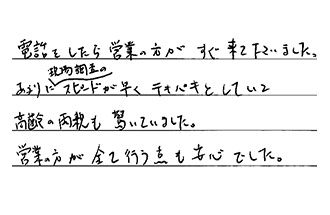 電話をしたら営業の方がすぐ来て下さいました。
現場調査の
あまりにスピードが早くテキパキとしていて
高齢の両親も驚いていました。
営業の方が全て行う点も安心でした。